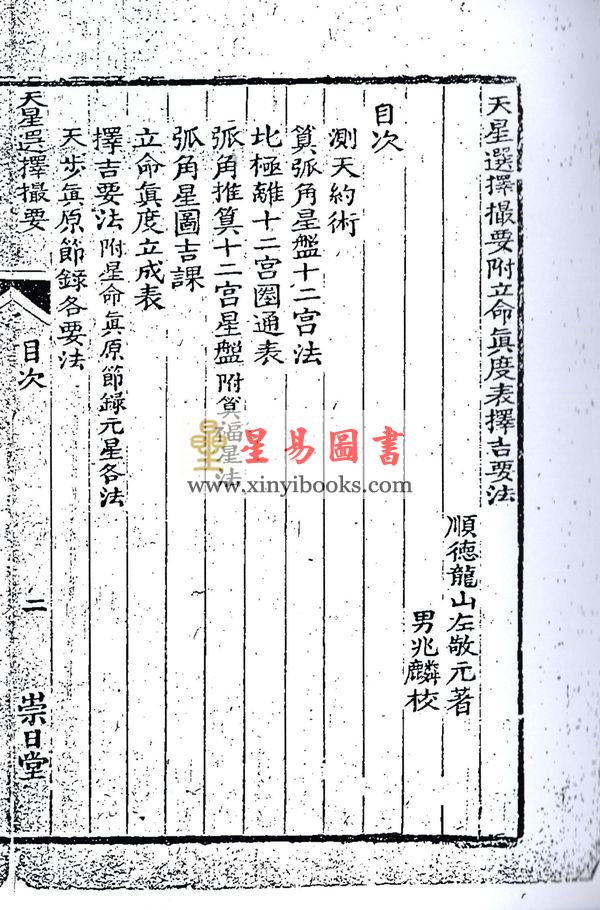 天星選擇撮要附立命眞度表擇吉要法
順德龍山左敬元著
男兆麟校
目次
測天約術
算弧角星盤十二宮法
北極離十二宮圈通表
弧角推算十二宮星盤附算福星法
弧角星圖吉課
立命眞度立成表
擇吉要法附星命眞原節錄元星各法
天步眞原節錄各要法
天星選擇撮要
目次
二
崇日堂
星易圖書
www.xinyibooks.com